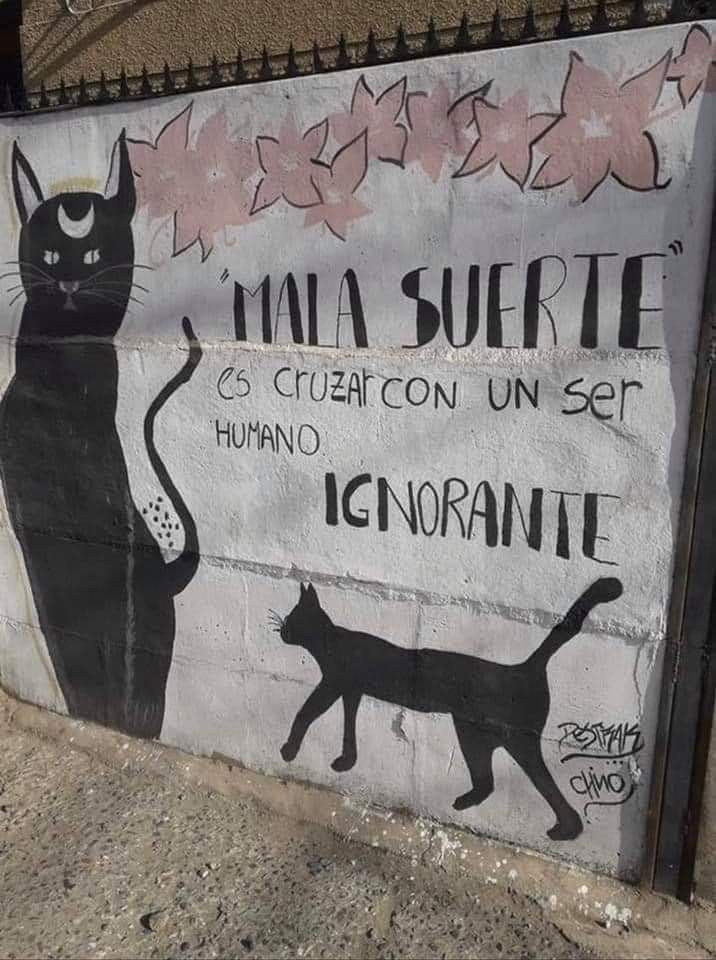 "MALA SUERTE"
es cruzar con un ser
HUMANO
IGNORANTE
CHINO